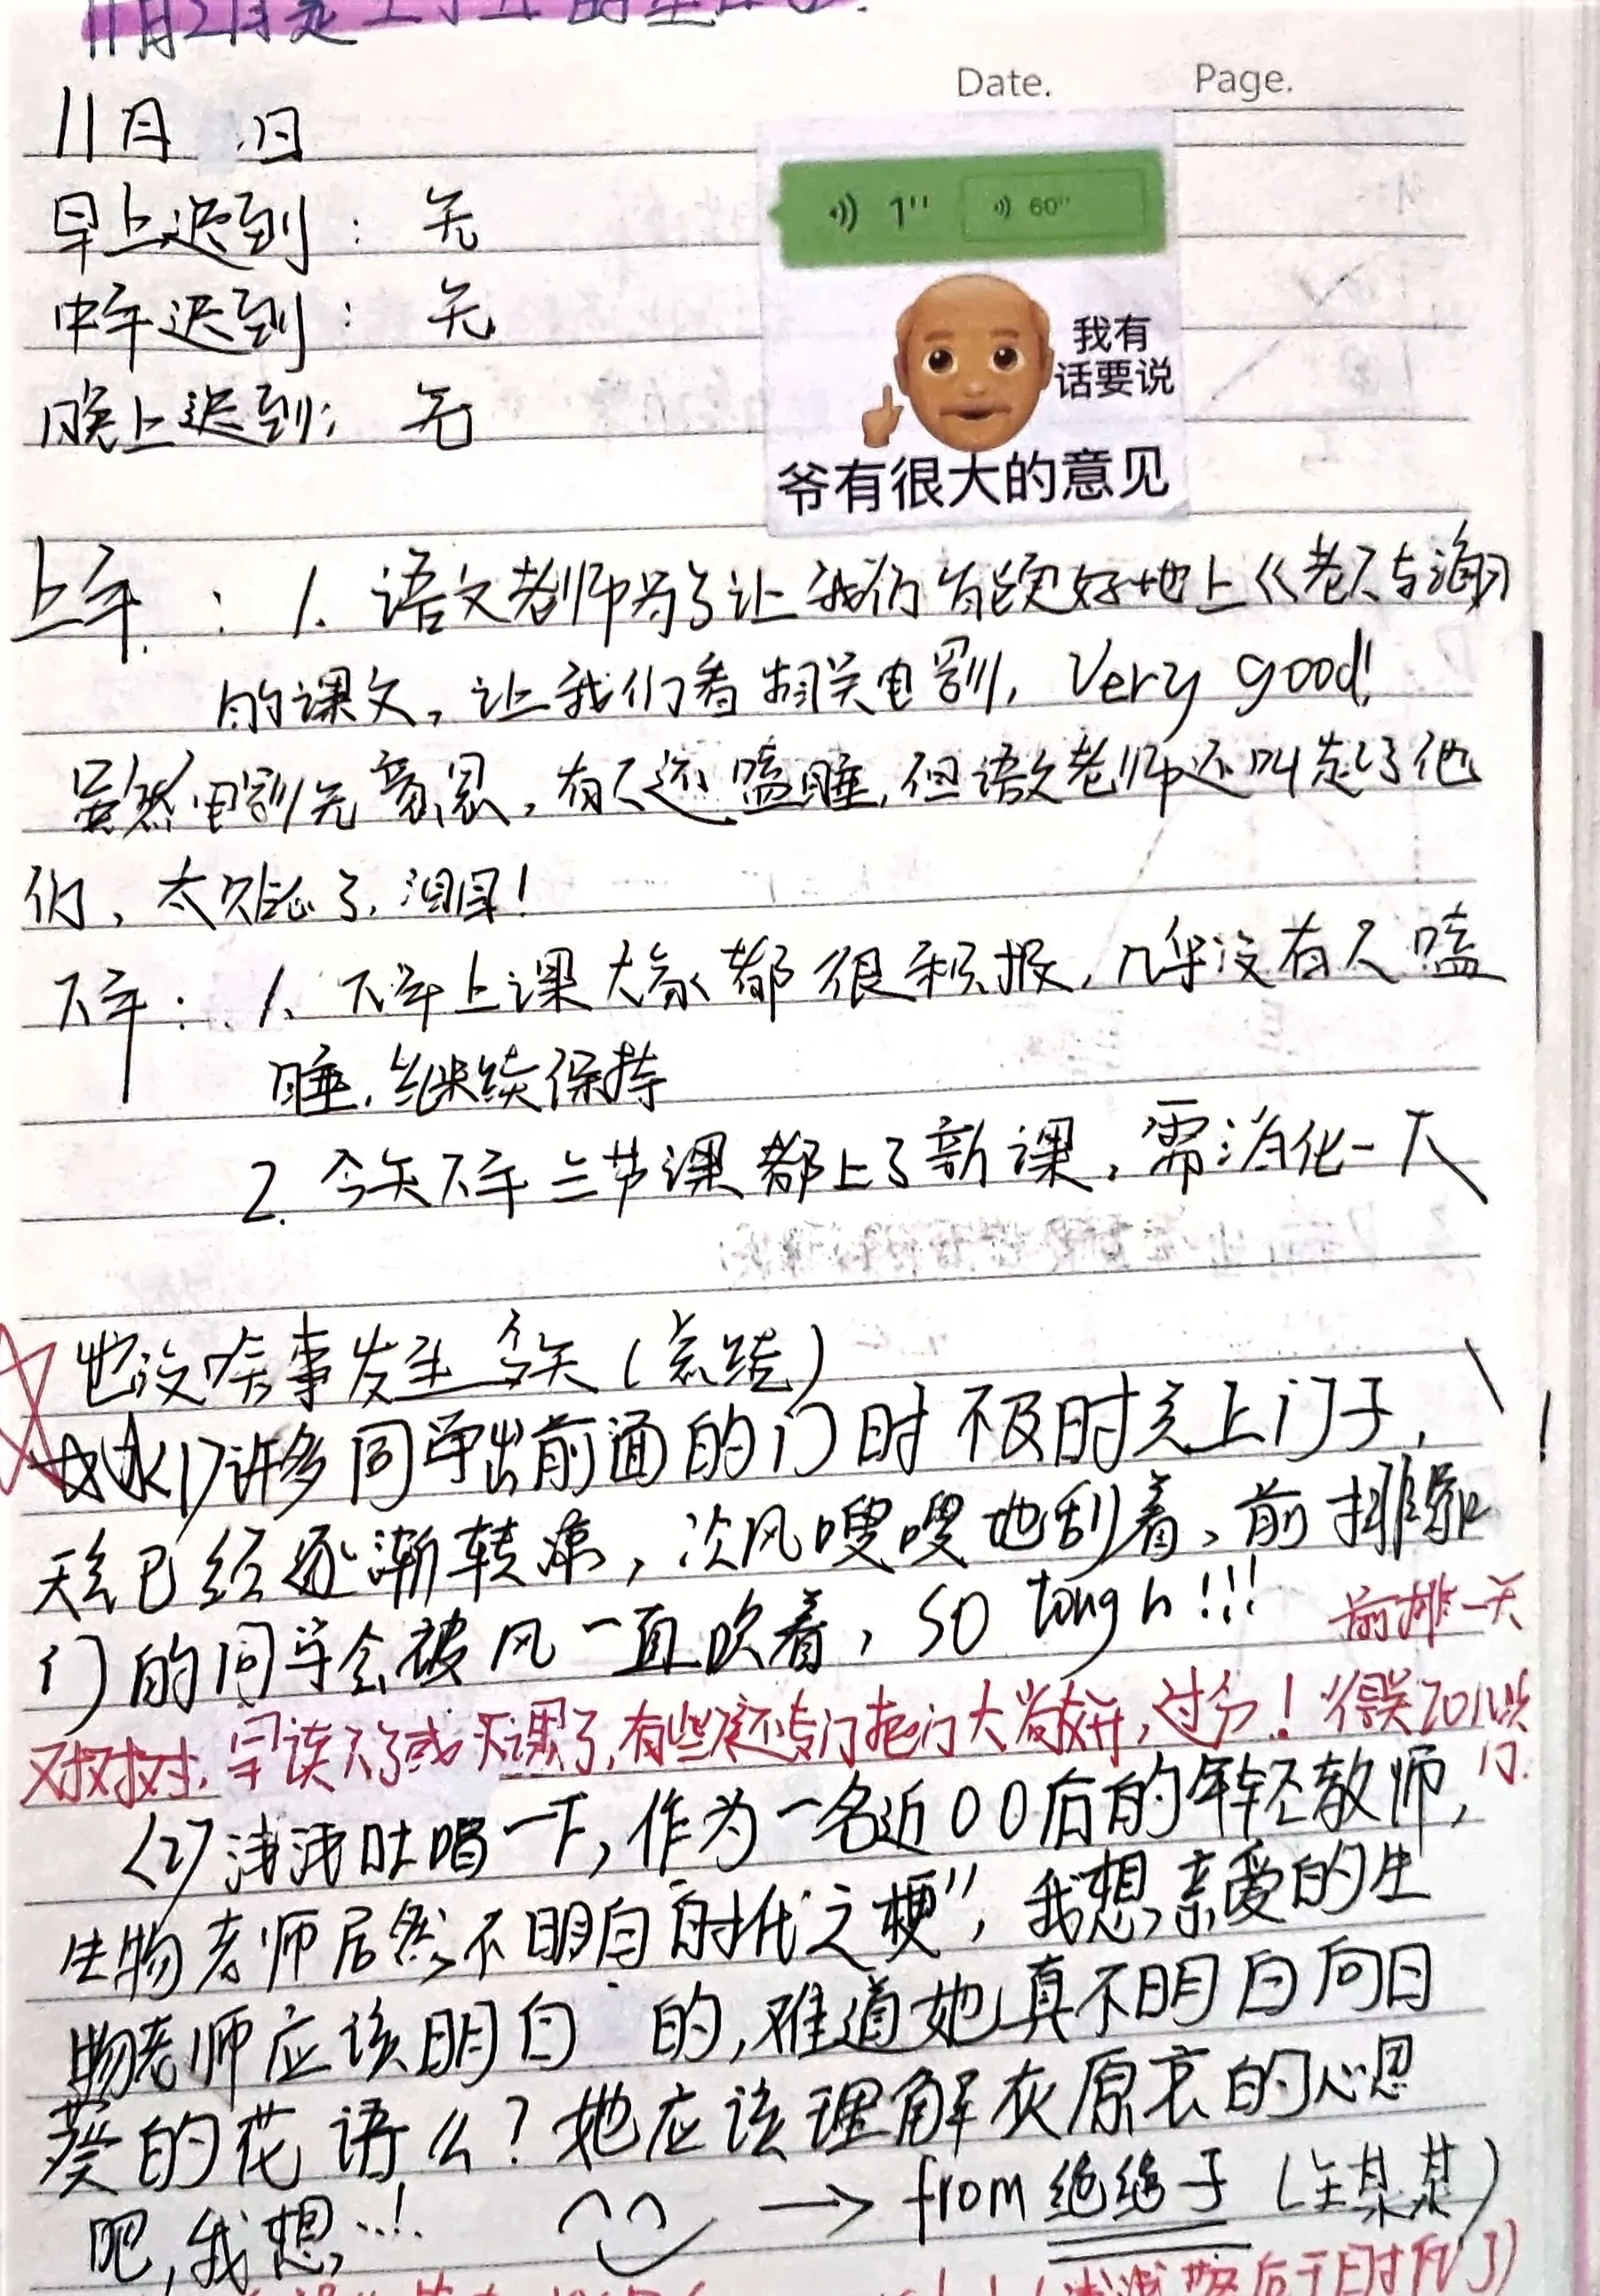 11月2日是
Date. Page.
11月 日
早上迟到：无
中午迟到：无
晚上迟到：无
1" 60"
我有
话要说
爷有很大的意见
上午：1. 语文老师为了让我们能更好地上《老人与海》
的课文，让我们看相关电影，Very good!
虽然电影无意思，有人还瞌睡，但语文老师还叫起了他
们，太贴心了，泪目！
下午：1. 下午上课大家都很积极，几乎没有人瞌
睡，继续保持
2. 今天下午三节课都上了新课，需消化一下
也没啥事发生今天（总结）
(1)许多同学出前面的门时不及时关上门子，！
天气已经逐渐转凉，冷风嗖嗖地刮着，前排靠
门的同学会被风一直吹着，so tough!!!
前排一天
有些还专门把门大敞开，过分！
门.
(2)浅浅吐嘈一下，作为一名近00后的年轻教师，
生物老师居然不明白"时代之梗"，我想亲爱的生
物老师应该明白 的，难道她真不明白向日
葵的花语么？她应该理解灰原哀的心思
吧，我想…！ → from 绝绝子（王某某）